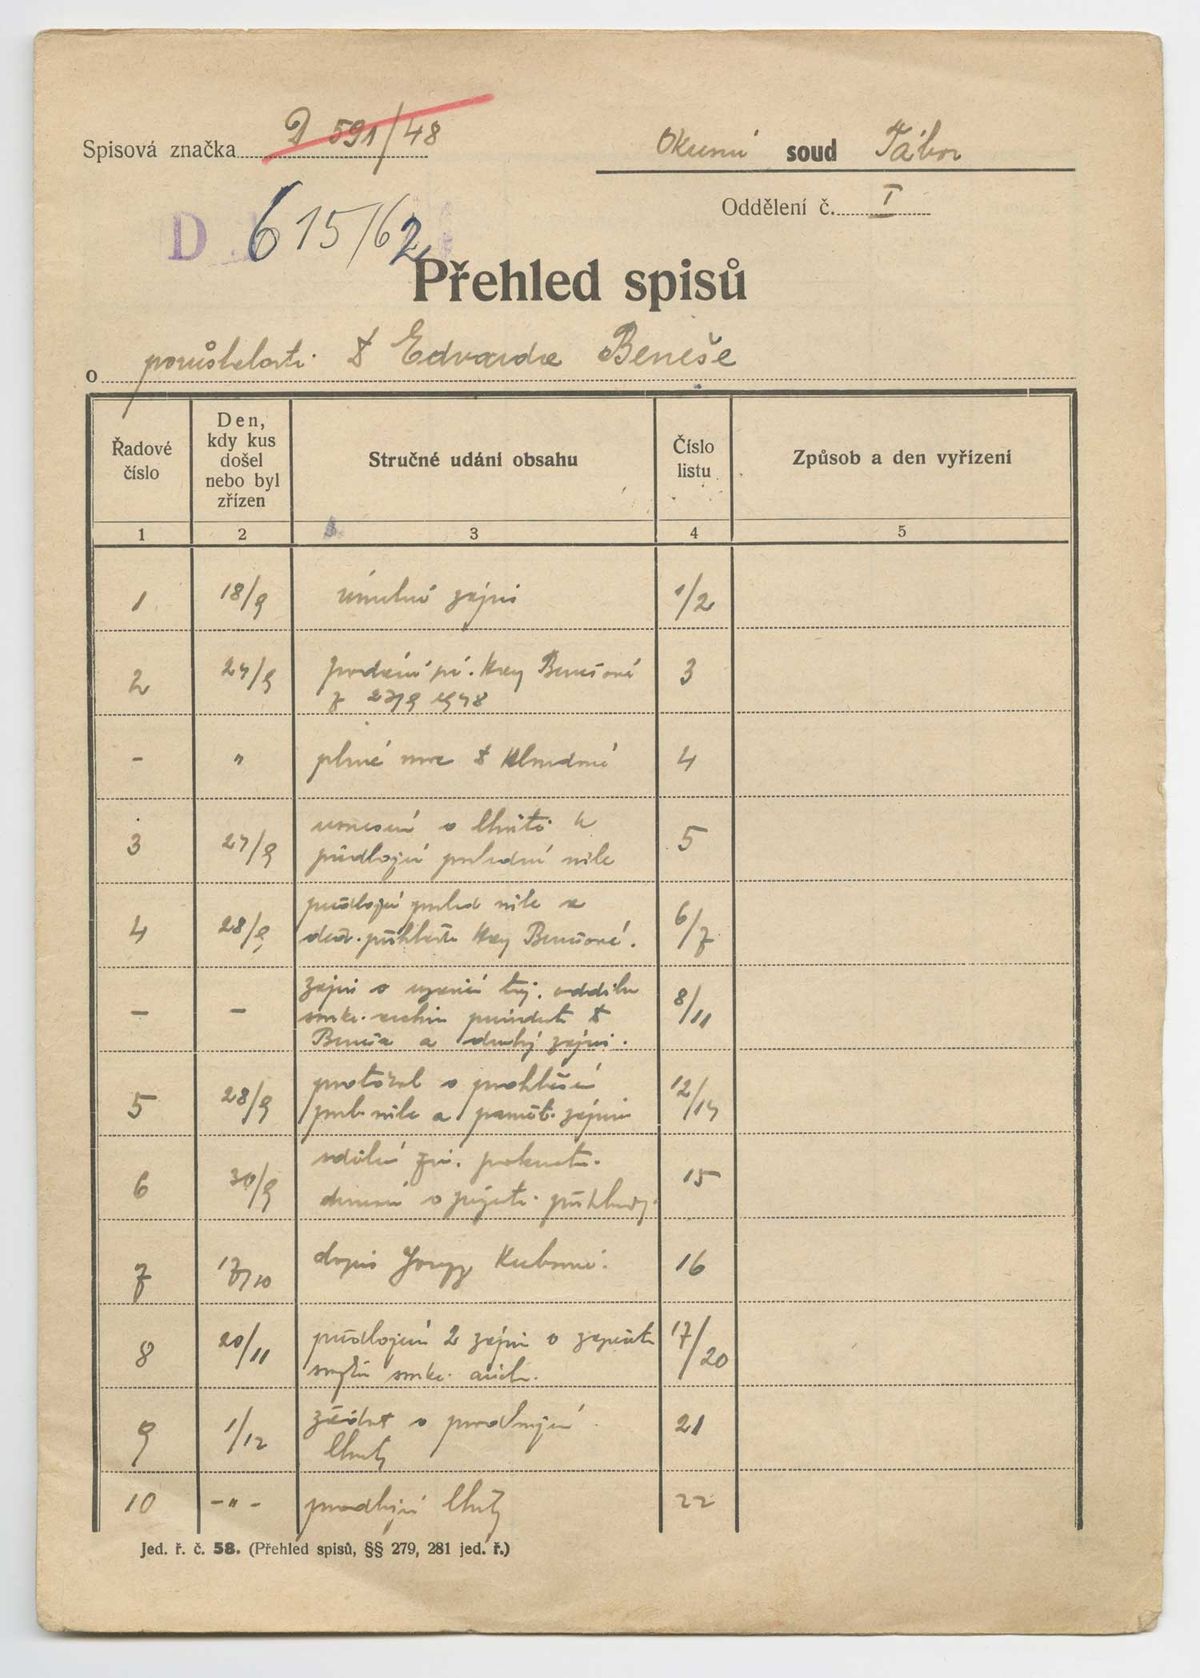 Spisová značka D 591/48
Okresní soud Tábor
Oddělení č. I
D 615/62
Přehled spisů
o pozůstalosti D Edvarda Beneše
Řadové číslo
Den, kdy kus došel nebo byl zřízen
Stručné udání obsahu
Číslo listu
Způsob a den vyřízení
1 2 3 4 5
1 18/9 úmrtní zápis 1/2
2 27/9 podání pí. Hany Benešové 3
z 27/9 1948
- " plná moc 4
3 27/9 usnesení o lhůtě k 5
předložení poslední vůle
4 28/9 předložení posled vůle a 6/7
přihláška Hany Benešové.
- - zápis o 8/11
Beneše a druhý zápis.
5 28/9 protokol o prohlášení 12/14
posl. vůle a zápisu
6 30/9 sdělení 15
o přijetí přihlášky.
7 17/10 dopis 16
8 20/11 předložení 2 zápisů o 17/20
9 1/12 žádost o prodloužení 21
lhůty
10 -"- prodloužení lhůty 22
Jed. ř. č. 58. (Přehled spisů, §§ 279, 281 jed. ř.)